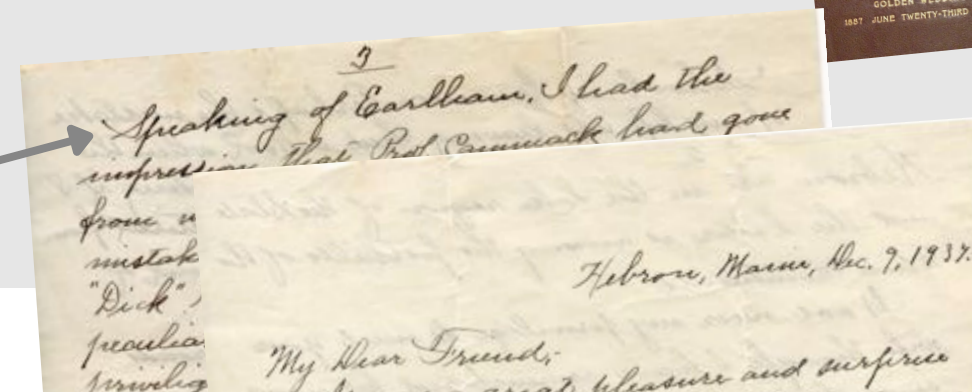 GOLDEN
1887 JUNE TWENTY-THIRD
3
Speaking of Earlham, I had the
impression that Prof Cammack had gone
from
mistak
"Dick"
peculia
privilig
Hebron, Maine, Dec. 9, 1937.
My Dear Friend;-
great pleasure and surprise